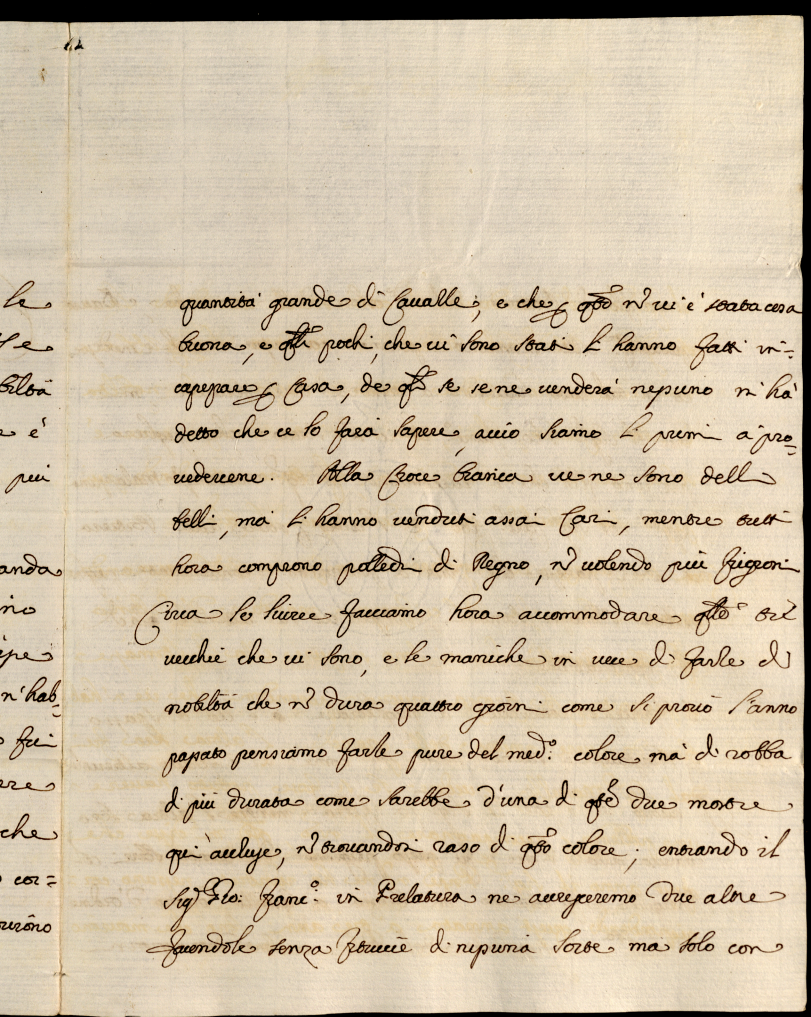 le
quantità grande di Cavalle, e che p questo n vi è stata cosa
buona, e questi pochi, che vi sono stati li hanno fatti in=
caparare p Casa, de questi se se ne venderà nessuno m'hà
biltà
detto che ce lo farà sapere, acciò siamo li primi à pro=
e è
vedercene. Alla Croce bianca ve ne sono delli
più
belli, mà li hanno venduti assai Cari, mentre tutti
hora comprono polledri di Regno, n volendo più frigioni
anda
Circa le livree facciamo hora accommodare queste trè
no
vecchie che vi sono, e le maniche in vece di farle di
nobiltà che n dura quattro giorni come si provò l'anno
n'hab=
passato pensiamo farle pure del med.º colore mà di robba
fui
di più durata come sarebbe d'una di queste due mostre
qui accluse, n trovandosi raso di questo colore; entrando il
che
Sig.r Gio: Franc.º in Prelatura ne accresceremo due altre
cor=
facendole senza fettuccie di nessuna sorte ma solo con